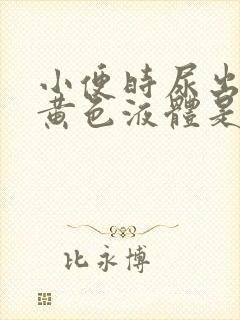 小便時尿出
黄色液體是
比永博